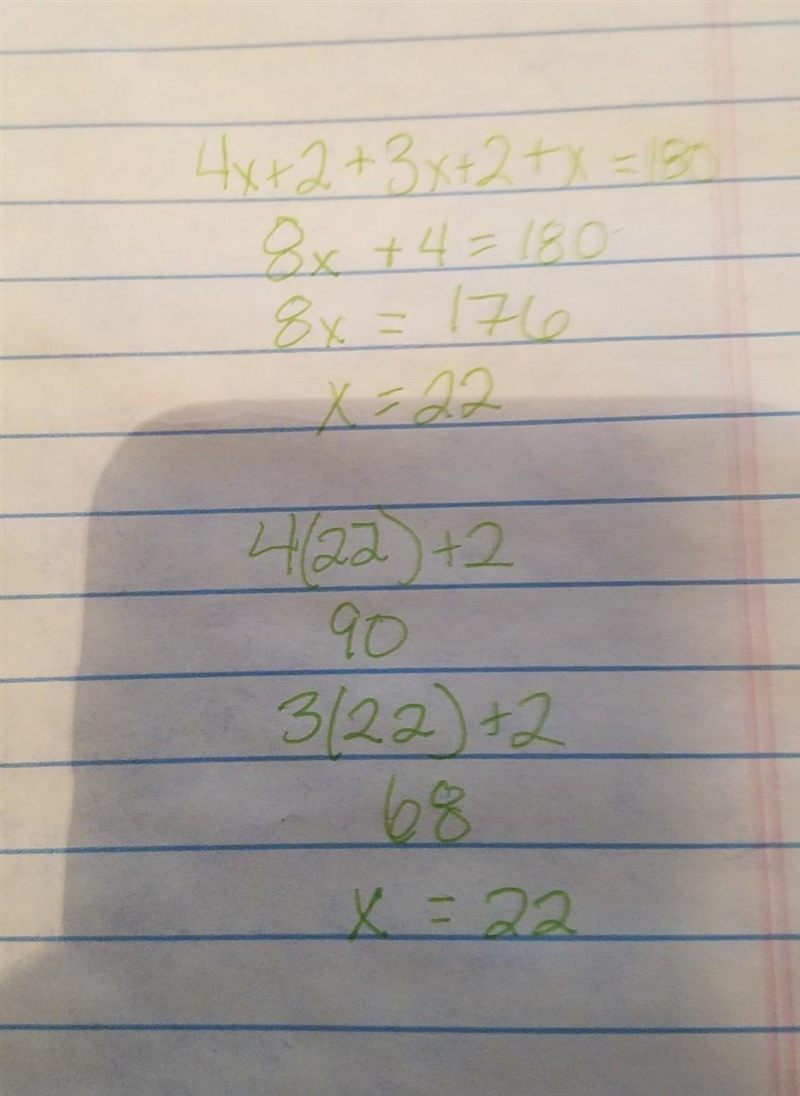 4x+2+3x+2+x=180
8x+4=180
8x=176
x=22
4(22)+2
90
3(22)+2
68
x=22